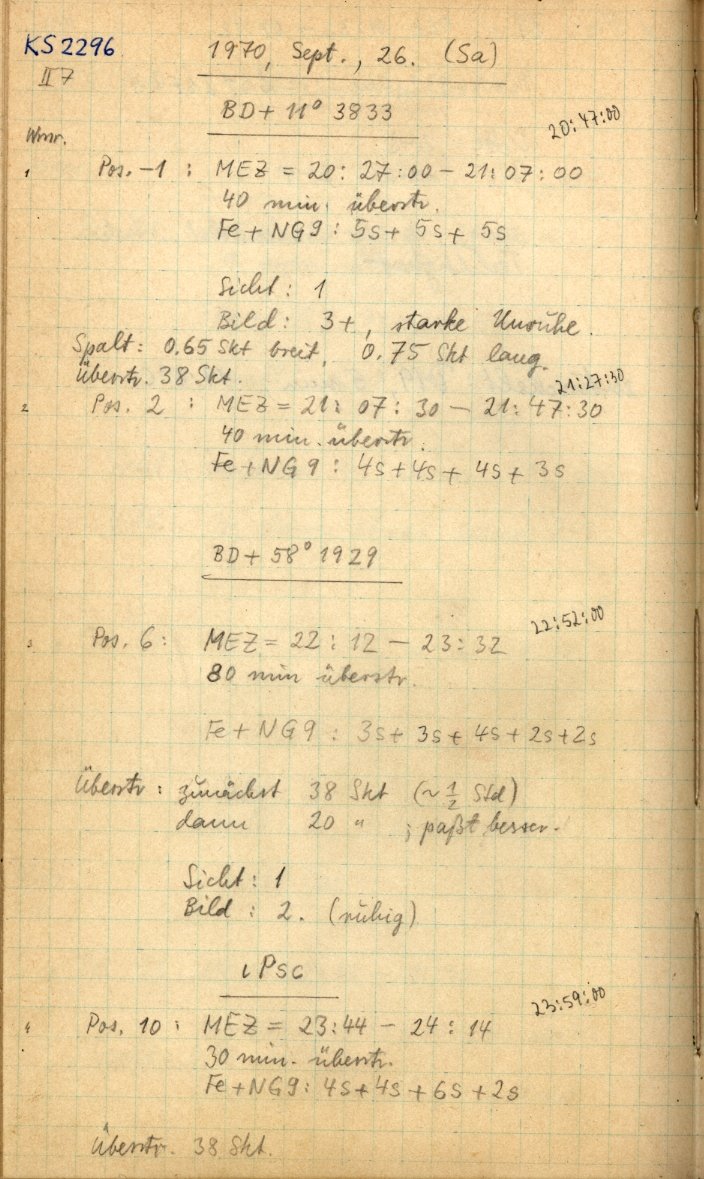 KS 2296
1970, Sept., 26. (Sa)
II 7
BD + 11° 3833
20:47:00
Wnr.
1 Pos. -1 : MEZ = 20:27:00 - 21:07:00
40 min. überstr.
Fe + NG9 : 5s + 5s + 5s
Sicht : 1
Bild : 3+, starke Unruhe.
Spalt : 0.65 Skt breit, 0.75 Skt lang.
Überstr. 38 Skt.
21:27:30
2 Pos. 2 : MEZ = 21:07:30 - 21:47:30
40 min. überstr.
Fe + NG9 : 4s + 4s + 4s + 3s
BD + 58° 1929
22:52:00
3 Pos. 6 : MEZ = 22:12 - 23:32
80 min überstr.
Fe + NG9 : 3s + 3s + 4s + 2s + 2s
Überstr : zunächst 38 Skt (~ 1/2 Std)
dann 20 " ; paßt besser.
Sicht : 1
Bild : 2. (ruhig)
ι Psc
23:59:00
4 Pos. 10 : MEZ = 23:44 - 24:14
30 min. überstr.
Fe + NG9 : 4s + 4s + 6s + 2s
Überstr. 38 Skt.